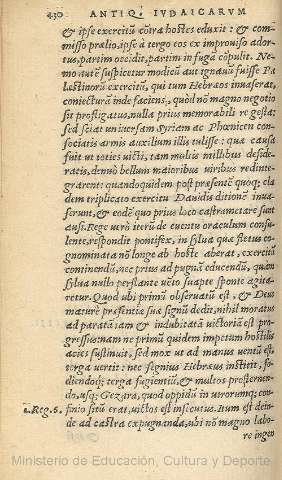 430 ANTIQ; IVDAICARVM
& ipse exercitũ cõtra hostes eduxit: & com-
misso prælio, ipse à tergo eos ex improuiso ador-
tus, partim occidit, partim in fugã cõpulit. Ne-
mo autẽ suspicetur modicũ aut ignauũ fuisse Pa
læstinorũ exercitũ, qui tum Hebræos inuaserat,
coniecturã inde faciens, quòd nõ magno negotio
sit profligatus, nulla prius memorabili re gesta:
sed sciat uniuersam Syriam ac Phœnicen con-
sociatis armis auxilium illis tulisse: quæ causa
fuit ut toties uicti, tam multis millibus deside-
ratis, denuò bellum maioribus uiribus redinte-
grarent: quandoquidem post præsentẽ quoq; cla
dem triplicato exercitu Dauidis ditionẽ inua-
serunt, & eodẽ quo prius loco castrametare sunt
ausi. Rege uerò iterũ de euentu oraculum consu-
lente, respondit pontifex, in sylua quæ fletus co-
gnominata nõ longe ab hoste aberat, exercitũ
continendũ, nec prius ad pugnã educendũ, quàm
sylua nullo perflante uẽto suapte sponte agita-
retur. Quod ubi primũ obseruatũ est, & Deus
mature præsentia sua signũ dedit, nihil moratus
ad paratã iam & indubitatã uictoriã est pro-
gressus: nam ne primũ quidem impetum hostilis
acies sustinuit, sed mox ut ad manus uentũ est,
terga uertit: nec segnius Hebræus institit, fo-
diendoq; terga fugientiũ, & multos prosternen-
do, usq; Gezara, quod oppidũ in utrorumq; con-
2. Reg. 6. finio sitũ erat, uictos est insecutus. Itum est dein-
de ad castra expugnanda, ubi nõ magno labo-
re ingen
Ministerio de Educación, Cultura y Deporte